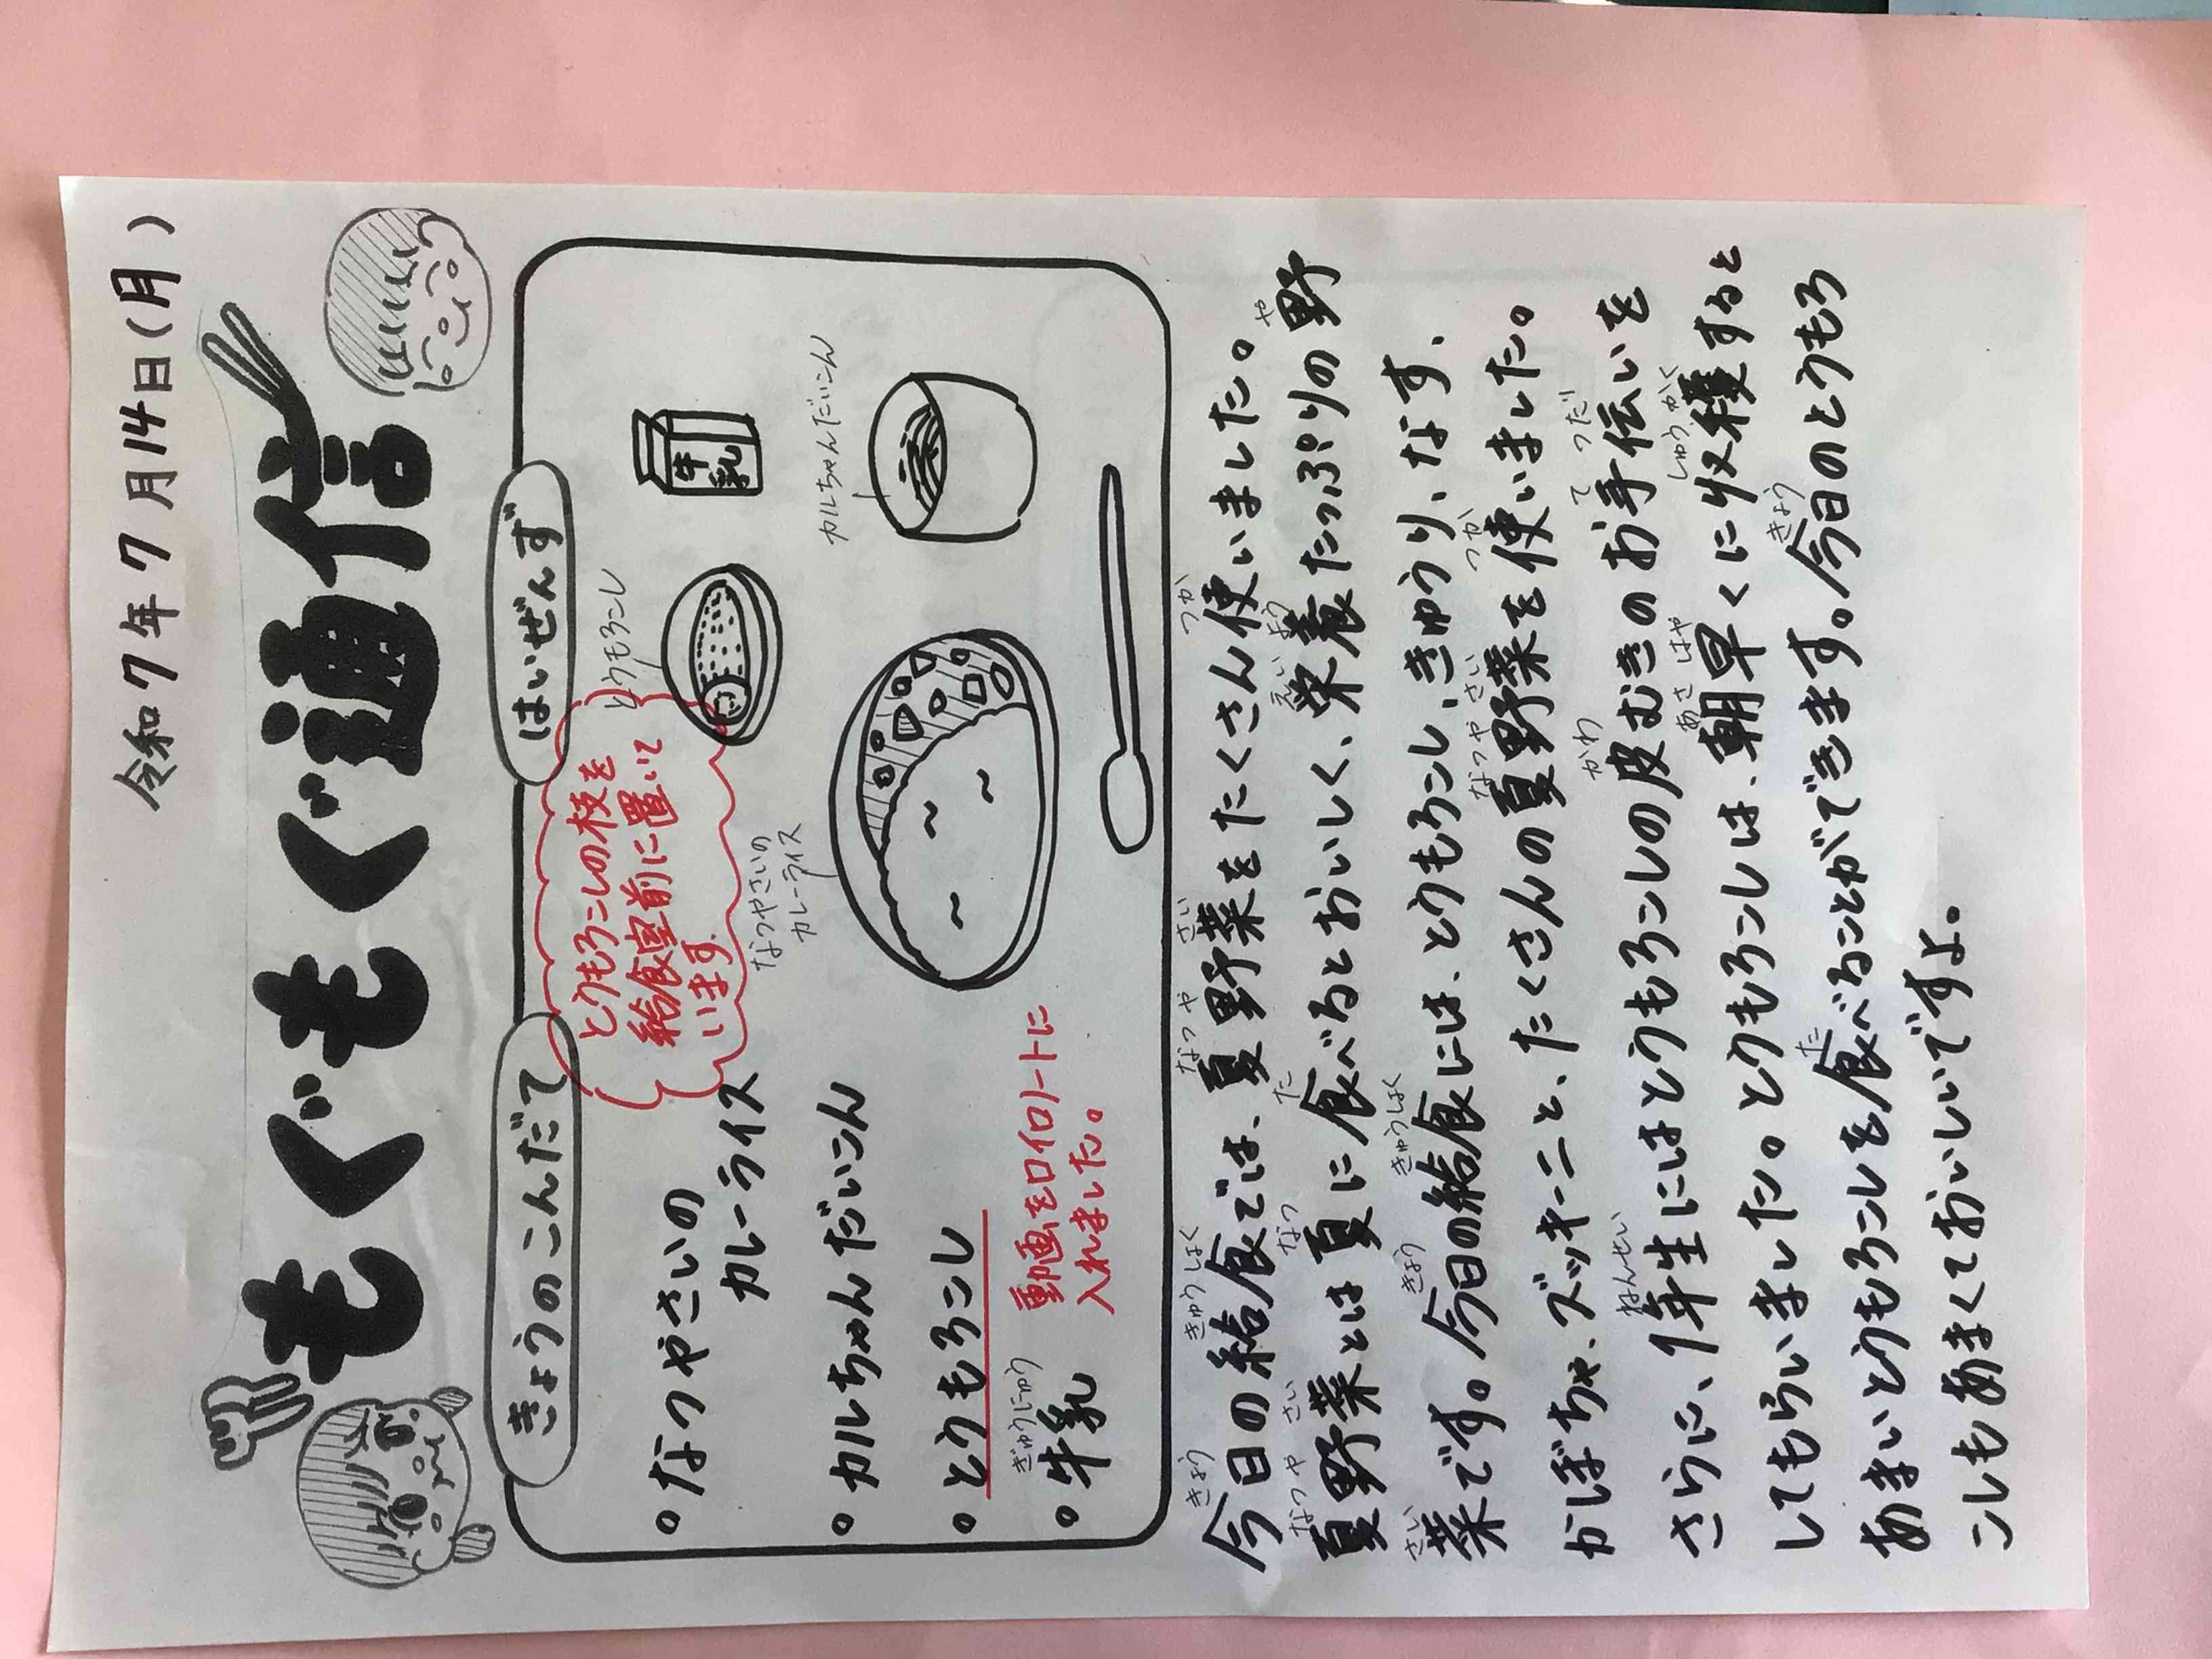 令和7年7月14日(月)
もぐもぐ通信
きょうのこんだて
なつやさいの
カレーライス
カルちゃんだいこん
とうもろこし
ぎゅうにゅう
牛乳
動画をロイロノートに
入れました。
とうもろこしの枝を
給食室前に置いて
います。
はいぜんず
とうもろこし
牛乳
なつやさいの
カレーライス
カルちゃんだいこん
きょう きゅうしょく なつ や さい つか
今日の給食では、夏野菜をたくさん使いました。
なつ や さい なつ た えい よう や
夏野菜とは夏に食べるとおいしく、栄養たっぷりの野
さい きょう きゅうしょく
菜です。今日の給食には、とうもろこし、きゅうり、なす、
なつ や さい つか
かぼちゃ、ズッキーニと、たくさんの夏野菜を使いました。
ねんせい かわ て つだ
さらに、1年生にはとうもろこしの皮むきのお手伝いを
あさ はや しゅう かく
してもらいました。とうもろこしは、朝早くに収穫すると
た きょう
あまいとうもろこしを食べることができます。今日のとうもろ
こしもあまくておいしいですよ。